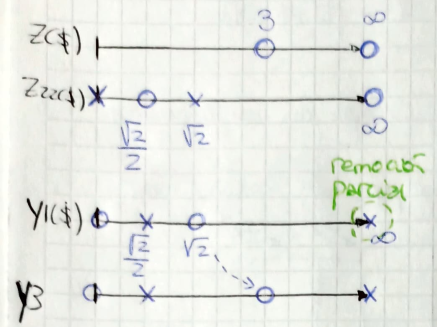 3 ∞
Z($)
Z22($)
√2/2 √2 ∞
remoción
parcial
Y1($)
√2/2 √2 ∞
Y3